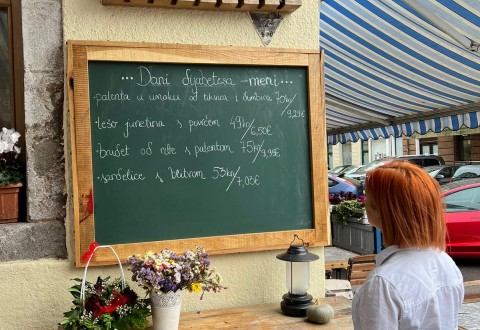 ... Dani dyabetesa - meni ...
• palenta u umaku od tikvica i đumbira 70kn/9,29€
• lešo junetina s povrćem 49kn/6,50€
• brudet od ribe s palentom 75kn/9,95€
• srdelice s blitvom 53kn/7,03€